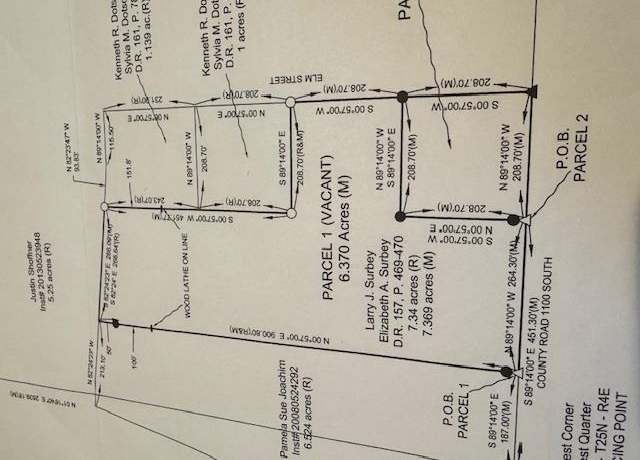 Kenneth R. Dots
Sylvia M. Dotso
D.R. 161, P. 78
1.139 ac.(R)
Kenneth R. Do
Sylvia M. Dots
D.R. 161, P.
1 acres (R
PA
ELM STREET
N 82°23'47" W
93.83'
N 89°14'00" W
115.50'
231.20'(R)
N 00°57'00" E
208.70'(R)
N 00°57'00" E
208.70'(M)
S 00°57'00" W
208.70'(M)
S 00°57'00" W
151.8'
N 89°14'00" W
208.70'
S 89°14'00" E
208.70'(R&M)
N 89°14'00" W
S 89°14'00" E
208.70'(M)
N 89°14'00" W
208.70'(M)
243.07'(R)
S 00°57'00" W
208.70'(R)
208.70'(M)
N 00°57'00" E
S 00°57'00" W
P.O.B.
PARCEL 2
Justin Shoffner
Inst# 20130523948
5.25 acres (R)
WOOD LATHE ON LINE
PARCEL 1 (VACANT)
6.370 Acres (M)
Larry J. Surbey
Elizabeth A. Surbey
D.R. 157, P. 469-470
7.34 acres (R)
7.369 acres (M)
N 89°14'00" W 264.30'(M)
S 89°14'00" E 451.30'(M)
COUNTY ROAD 1100 SOUTH
N 82°24'23" W
213.10'
50'
100'
N 00°57'00" E 900.80'(R&M)
Pamela Sue Joachim
Inst# 20080524292
6.524 acres (R)
P.O.B.
PARCEL 1
S 89°14'00" E
187.00'(M)
est Corner
est Quarter
- T25N - R4E
CING POINT